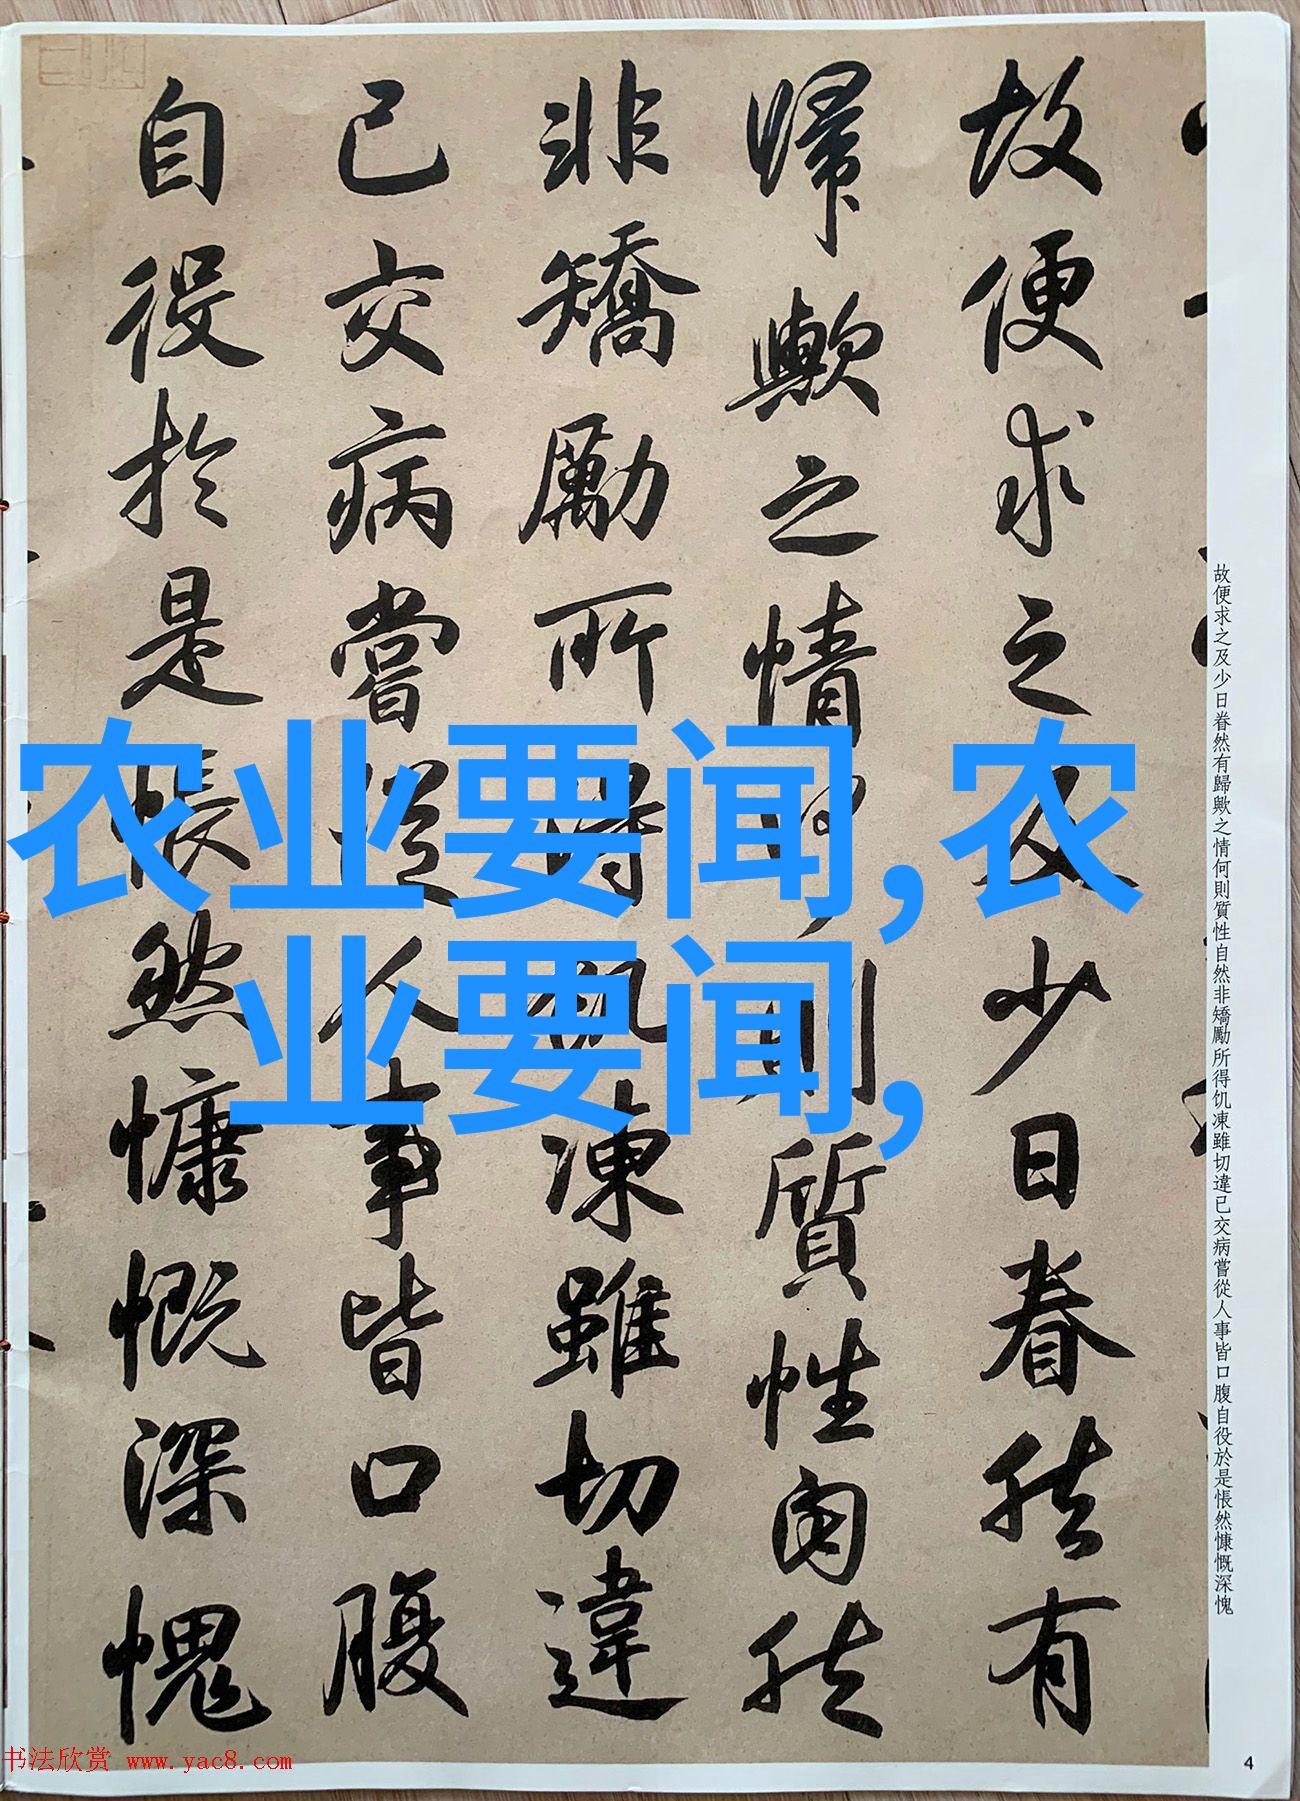 故便求之及少日眷然有
歸歟之情何則質性自然
非矯勵所得飢凍雖切違
已交病嘗從人事皆口腹
自役於是悵然慷慨深愧
故便求之及少日眷然有歸歟之情何則質性自然非矯勵所得饥凍雖切違已交病嘗從人事皆口腹自役於是悵然慷慨深愧
农业要闻,农
业要闻,
书法欣赏 www.yac8.com
4